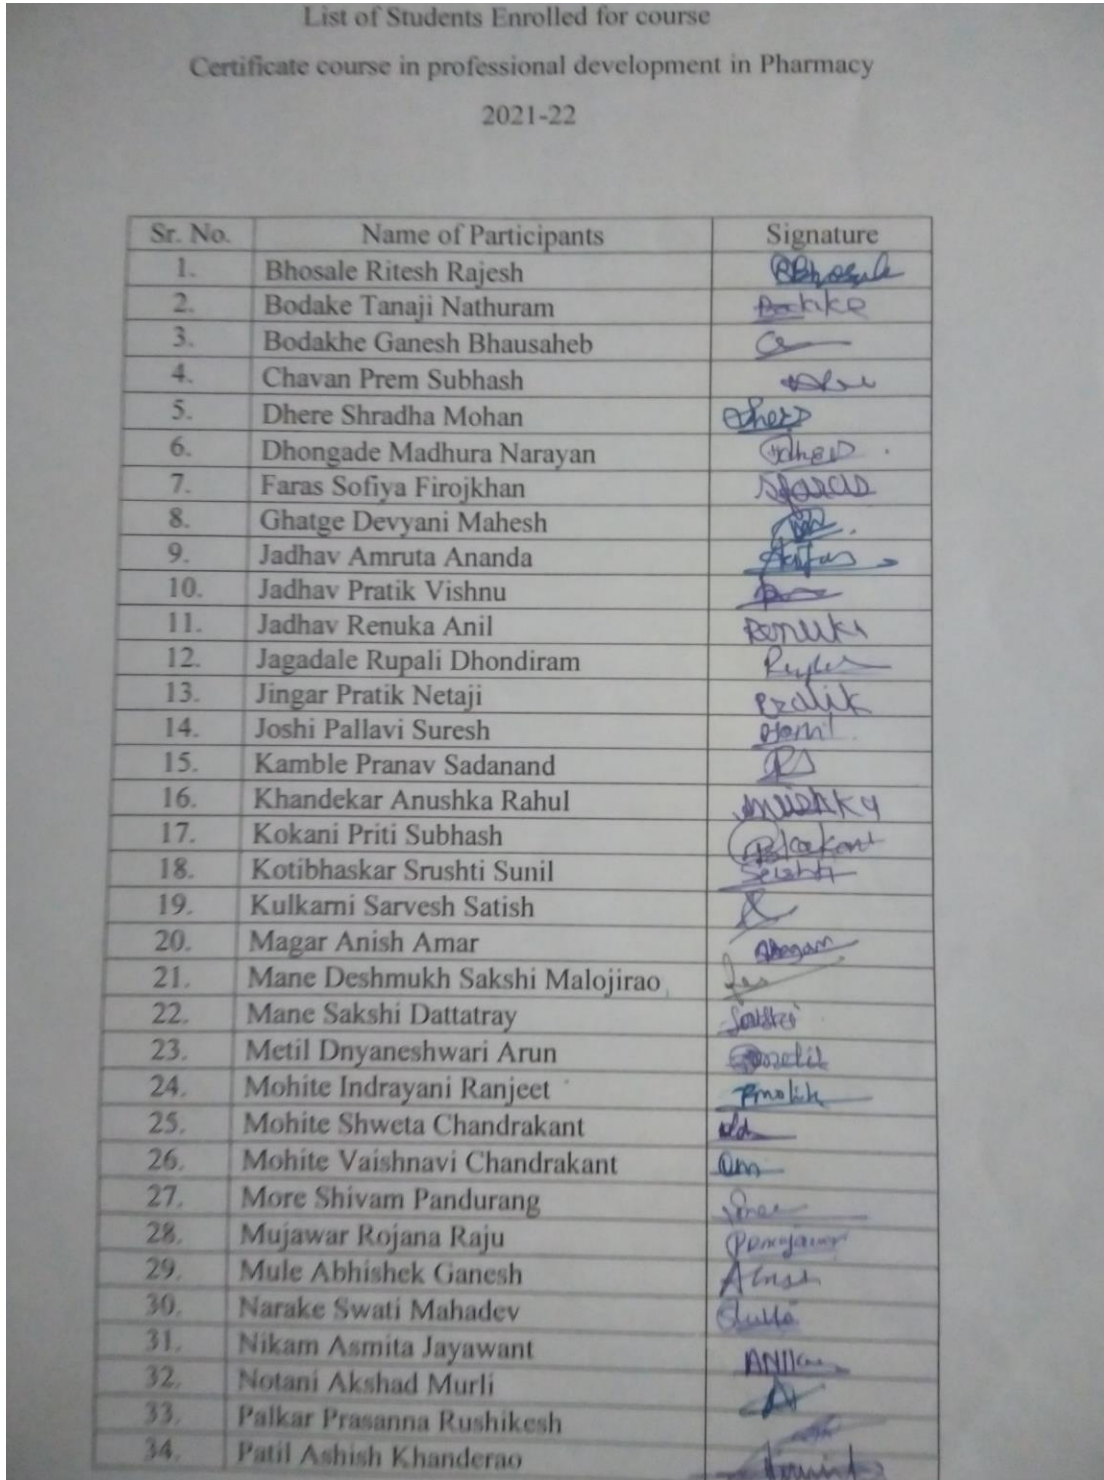 List of Students Enrolled for course
Certificate course in professional development in Pharmacy
2021-22
Sr. No. Name of Participants Signature
1. Bhosale Ritesh Rajesh RBhosale
2. Bodake Tanaji Nathuram
3. Bodakhe Ganesh Bhausaheb
4. Chavan Prem Subhash
5. Dhere Shradha Mohan
6. Dhongade Madhura Narayan
7. Faras Sofiya Firojkhan Sfaras
8. Ghatge Devyani Mahesh
9. Jadhav Amruta Ananda
10. Jadhav Pratik Vishnu
11. Jadhav Renuka Anil
12. Jagadale Rupali Dhondiram
13. Jingar Pratik Netaji Pratik
14. Joshi Pallavi Suresh
15. Kamble Pranav Sadanand
16. Khandekar Anushka Rahul
17. Kokani Priti Subhash
18. Kotibhaskar Srushti Sunil
19. Kulkarni Sarvesh Satish
20. Magar Anish Amar
21. Mane Deshmukh Sakshi Malojirao
22. Mane Sakshi Dattatray
23. Metil Dnyaneshwari Arun
24. Mohite Indrayani Ranjeet
25. Mohite Shweta Chandrakant
26. Mohite Vaishnavi Chandrakant
27. More Shivam Pandurang
28. Mujawar Rojana Raju
29. Mule Abhishek Ganesh
30. Narake Swati Mahadev
31. Nikam Asmita Jayawant
32. Notani Akshad Murli
33. Palkar Prasanna Rushikesh
34. Patil Ashish Khanderao